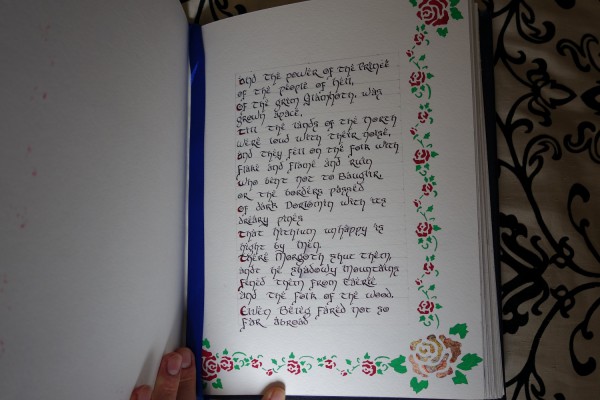 and the power of the Prince
of the people of Hell,
of the grim Glamhoth, was
grown apace,
Till the lands of the North
were loud with their noise,
and they fell on the folk with
flame and ruin
who bent not to Bauglir,
or the borders passed
of dark Dorlomin with its
dreary pines
that Hithlum unhappy is
hight by Men.
There Morgoth shut them,
and the Shadowy Mountains
fenced them from Faërie
and the folk of the wood.
Even Beleg fared not so
far abroad